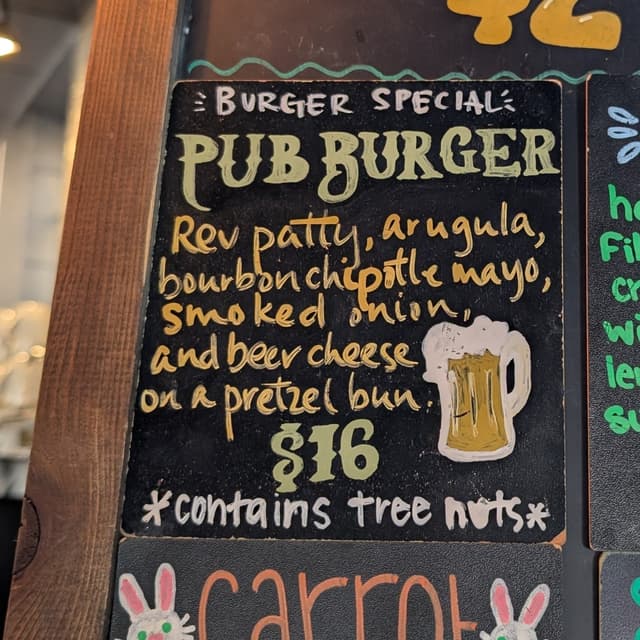 BURGER SPECIAL
PUB BURGER
Rev patty, arugula,
bourbon chipotle mayo,
smoked onion,
and beer cheese
on a pretzel bun.
$16
*contains tree nuts*
carrot